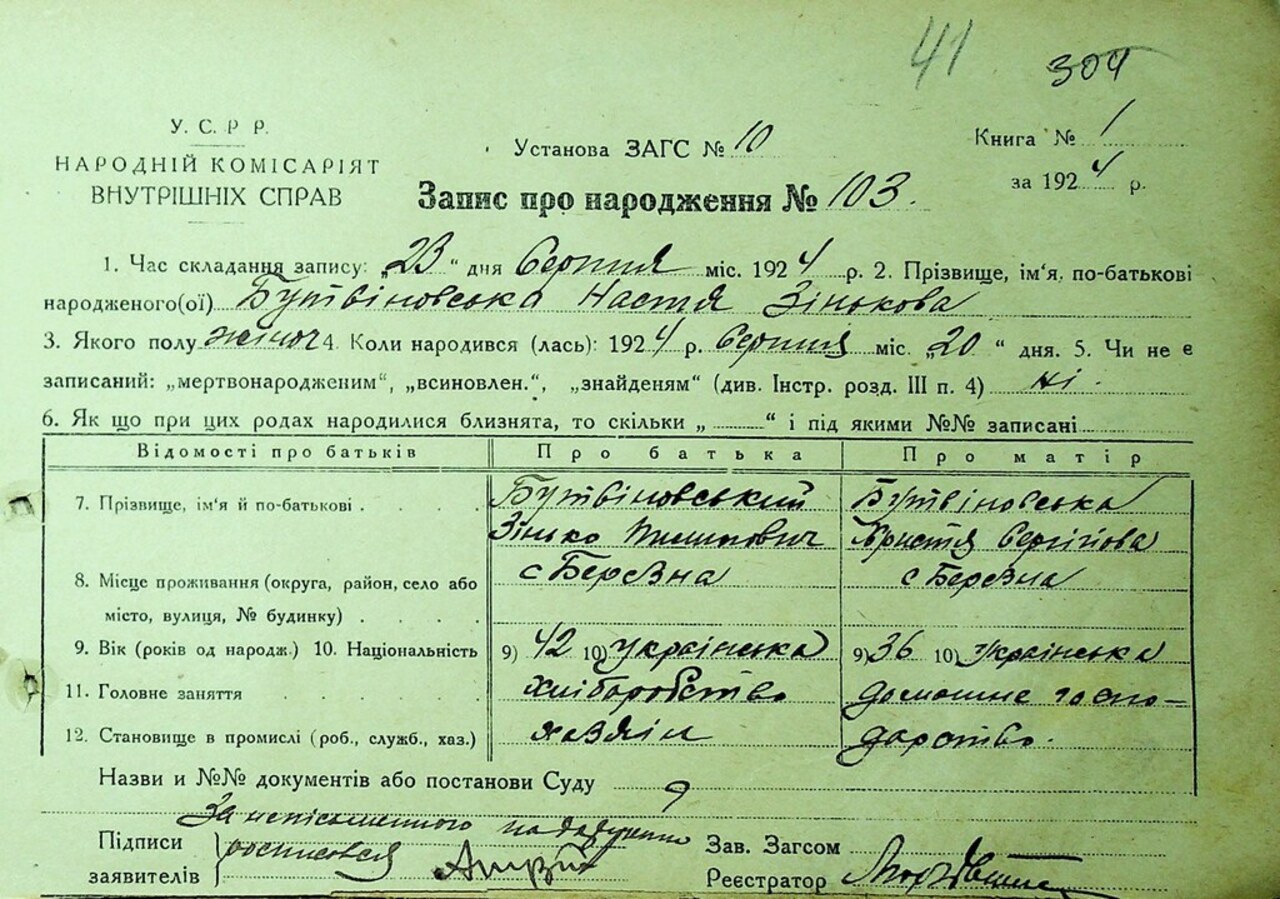 41
304
У. С. Р. Р.
НАРОДНІЙ КОМІСАРІЯТ
ВНУТРІШНІХ СПРАВ
Установа ЗАГС № 10
Книга № 1
за 1924 р.
Запис про народження № 103.
1. Час складання запису: „23“ дня Серпня міс. 1924 р. 2. Прізвище, ім'я, по-батькові
народженого(ої) Бутвіновська Настя Зінькова
3. Якого полу жіноч 4. Коли народився (лась): 1924 р. Серпня міс. „20“ дня. 5. Чи не є
записаний: „мертвонародженим“, „всиновлен.“, „знайденям“ (див. Інстр. розд. III п. 4) ні.
6. Як що при цих родах народилися близнята, то скільки „ “ і під якими №№ записані
Відомості про батьків Про батька Про матір
7. Прізвище, ім'я й по-батькові Бутвіновський Бутвіновська
Зінько Пилипович Христя Сергіїова
8. Місце проживання (округа, район, село або с Березна с Березна
місто, вулиця, № будинку)
9. Вік (років од народж.) 10. Національність 9) 42 10) українська 9) 36 10) українська
11. Головне заняття хліборобство домашнє госпо-
12. Становище в промислі (роб., служб., хаз.) хазяїн дарство.
Назви и №№ документів або постанови Суду 9
За неписьменного
Підписи росписовся Зав. Загсом
заявителів Реєстратор